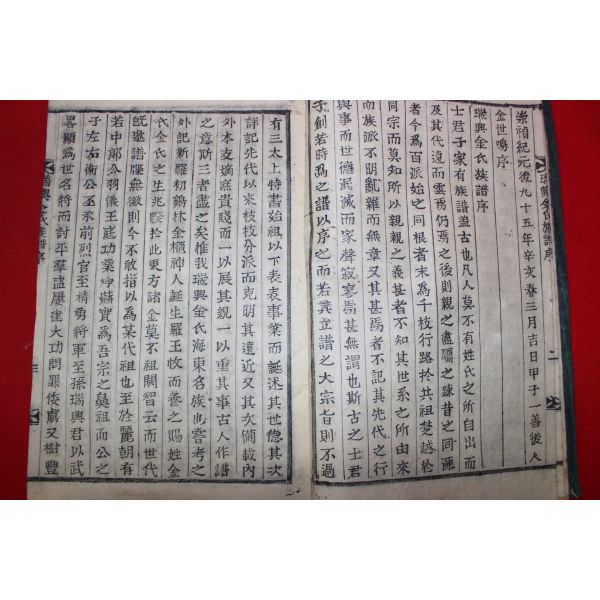 崇禎紀元後九十五年辛亥春三月吉日甲子一善後人
金世鳴序
瑞興金氏族譜序
士君子家有族譜盖古也凡人莫不有姓氏之所自出而
及其代遠而雲仍焉之後則親之盡屬之踈昔之同源
者今爲百派始之同根者末爲千枝行路於共祖楚越於
同宗而莫知所以親親之義甚者不知其世系之所由來
而族派不明亂雜而無章又其甚焉者不記其先代之行
與事而世德泯滅而家聲寂寥焉甚無謂也斯古之士君
子創若時爲之譜以序之而若其立譜之大宗旨則不過
有三太上特書始祖以下表表事業而誕述其世德其次
詳記先代以來枝枝分派而克明其遠近又其次備載內
外本支嫡庶貴賤而一以展其親一以重其事古人作譜
之意斯三者盡之矣惟我瑞興金氏海東名族也嘗考之
外記新羅初鷄林金櫃神人誕生羅王收而養之賜姓金
代金氏之生兆於此東方諸金莫不祖閼智云而世代
旣邈譜牒無徵則今不敢指以爲某代祖也至於麗朝有
若中郞公羽儀王庭功業崢嶸實爲吾宗之鼻祖而公之
子左右衛公至承前烈官至精勇將軍至孫瑞興君以武
畧顯爲世名將而討平羣盜屢建大功問罪倭虜又樹豐
瑞興金氏族譜序
二
瑞興金氏族譜序
三